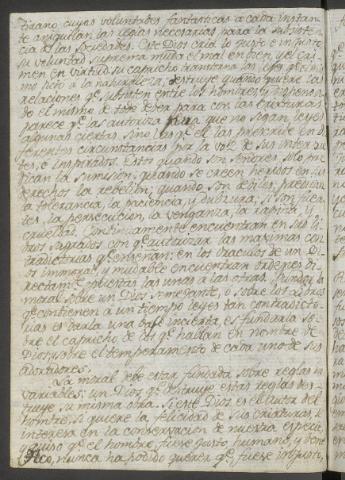 tirano, cuyas voluntades fantasticas a cada instan-
te aniquilan las reglas necesarias para la subsisten-
cia de las Sociedades. Este Dios cria lo justo e injusto,
su voluntad suprema muda el mal en bien, y el cri-
men en virtud su capricho
a la naturaleza, destruye quando quiere las
relaciones qe. subsisten entre los hombres y dispensan-
do el mismo de todo deber para con las criaturas
parece qe. las autoriza para que no sigan leyes
algunas ciertas, sino las qe. el las prescribe en di-
ferentes circunstancias por la voz de sus interpre-
tes, e inspirados. Estos quando son Señores solo pre-
dican la sumision; quando se creen heridos en sus
derechos la rebelion; quando son debiles, predican
la tolerancia, la paciencia, y dulzura; si son fuer-
tes, la persecucion, la venganza, la rapiña, y
crueldad. Continuamente encuentran en sus Li-
bros sagrados con qe. autorizar las maximas con-
tradictorias qe. enseñan; en los oraculos de un Di-
os inmoral, y mudable encuentran ordenes di-
rectamte. opuestas las unas a las otras. Fundar la
moral sobre un Dios semejante, o sobre los Libros
qe. contienen a un tiempo leyes tan contradicto-
rias es darla una base incierta, es fundarla so-
bre el capricho de los qe. hablan en nombre de
Dios, sobre el temperamento de cada uno de sus
adoradores.
La moral debe estar fundada sobre reglas in-
variables; un Dios qe. destruye estas reglas des-
truye su misma obra. Si este Dios es el autor del
hombre, si quiere la felicidad de sus criaturas, si
interesa en la conservacion de nuestra especie,
quiso qe. el hombre fuese justo, humano, y bene-
fico, nunca ha podido querer qe. fuese injusto,